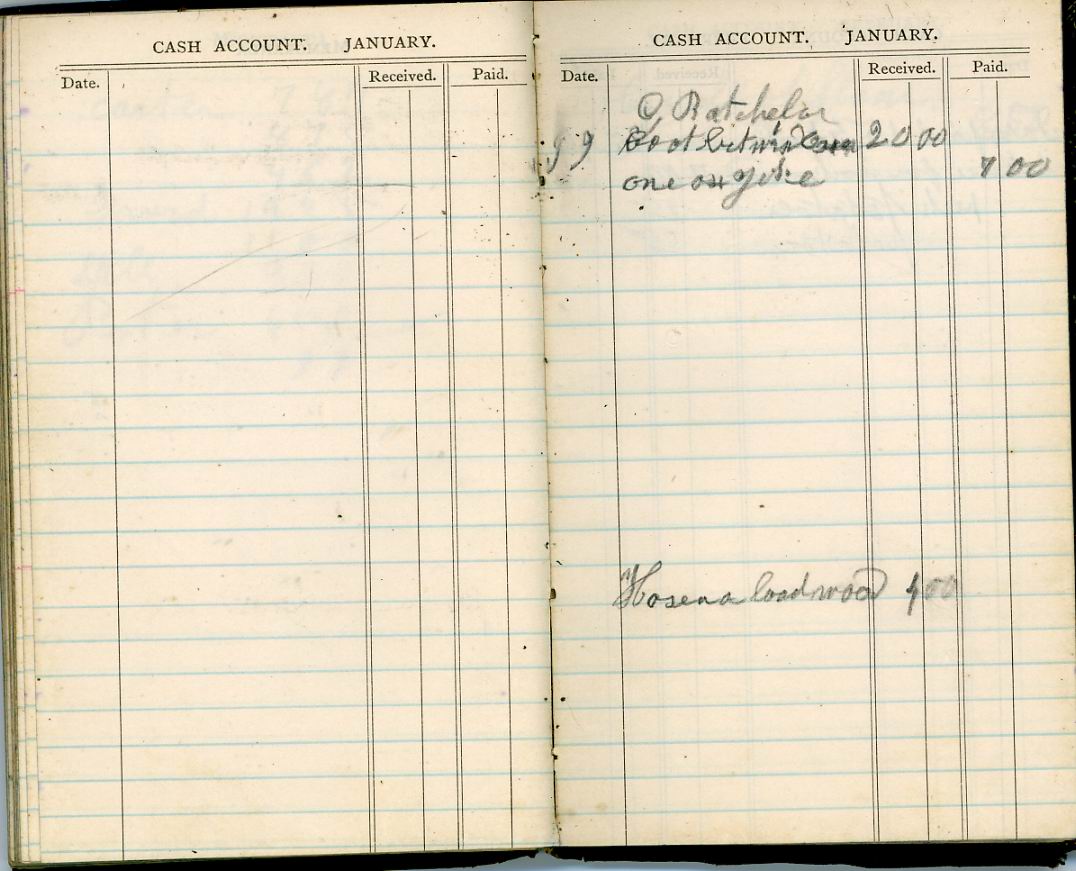 CASH ACCOUNT. JANUARY.
Date. Received. Paid.
CASH ACCOUNT. JANUARY.
Date. Received. Paid.
G Batchelor
99 20 00
one ox yoke 7 00
Hosena load wood 4 00